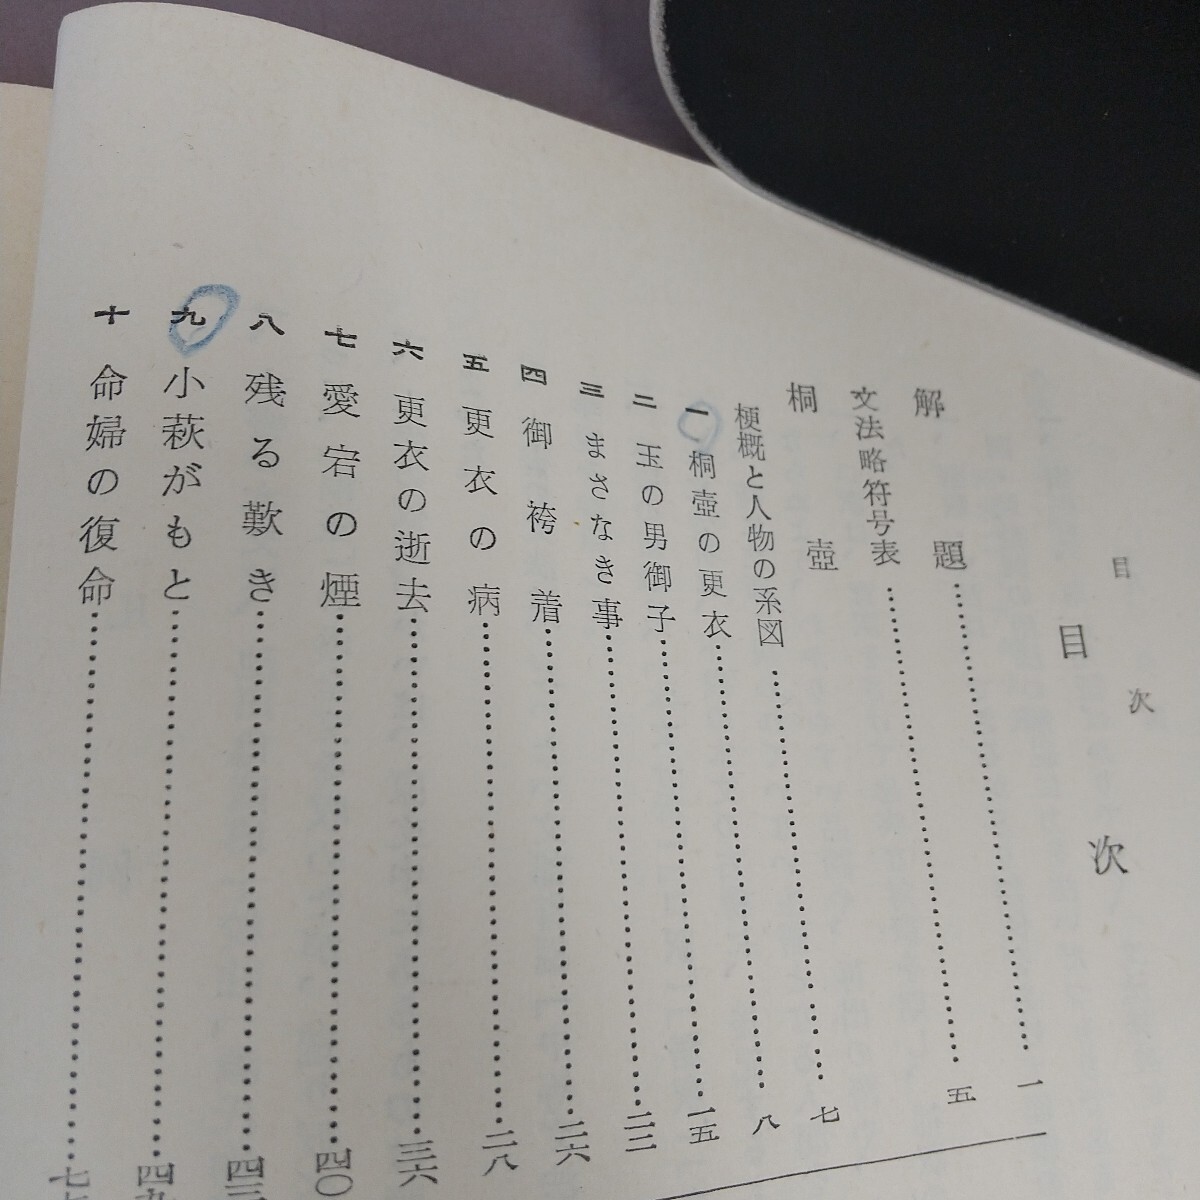 目次
目次
解題……………一
文法略符号表……………五
桐壺
梗概と人物の系図……………七
一 桐壺の更衣……………八
二 玉の男御子……………一五
三 まさなき事……………二二
四 御袴着……………二六
五 更衣の病……………二八
六 更衣の逝去……………三六
七 愛宕の煙……………四〇
八 残る歎き……………四三
九 小萩がもと……………四九
十 命婦の復命……………